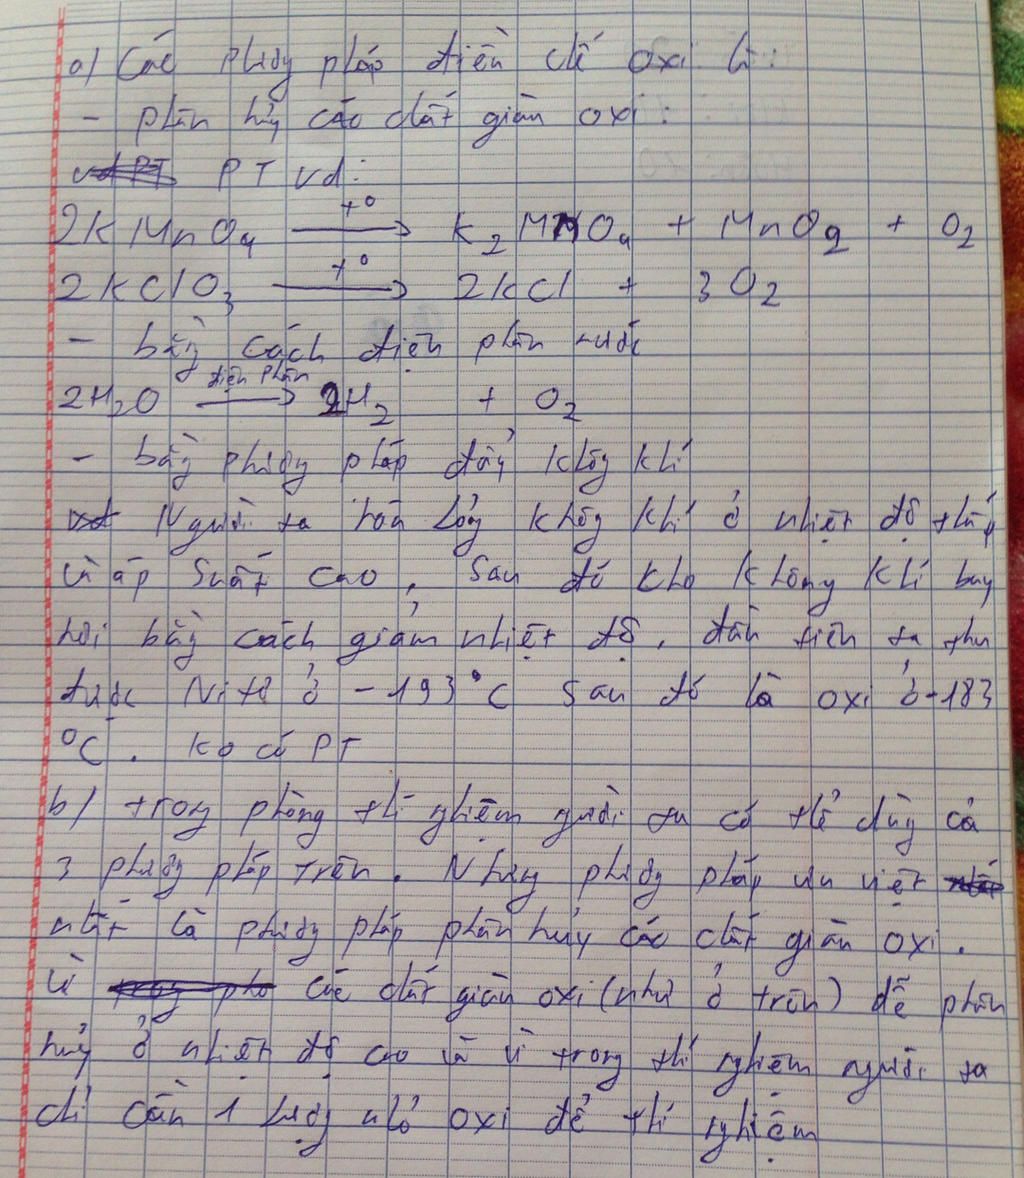 a) Các phương pháp điều chế oxi là:
- phân hủy các chất giàu oxi:
PT vd:
2KMnO4 t° → K2MnO4 + MnO2 + O2
2KClO3 t° → 2KCl + 3O2
- bằng cách điện phân nước
2H2O điện phân → 2H2 + O2
- bằng phương pháp đẩy không khí
Người ta hóa lỏng không khí ở nhiệt độ thấp
và áp suất cao, sau đó cho không khí bay
hơi bằng cách giảm nhiệt độ. đầu tiên ta thu
được Nitơ ở -193°C sau đó là oxi ở -183
°C. Ko có PT
b) trong phòng thí nghiệm người ta có thể dùng cả
3 phương pháp trên. Nhưng phương pháp ưu việt
nhất là phương pháp phân hủy các chất giàu oxi.
Vì các chất giàu oxi (như ở trên) dễ phân
hủy ở nhiệt độ cao và vì trong thí nghiệm người ta
chỉ cần 1 lượng nhỏ oxi để thí nghiệm